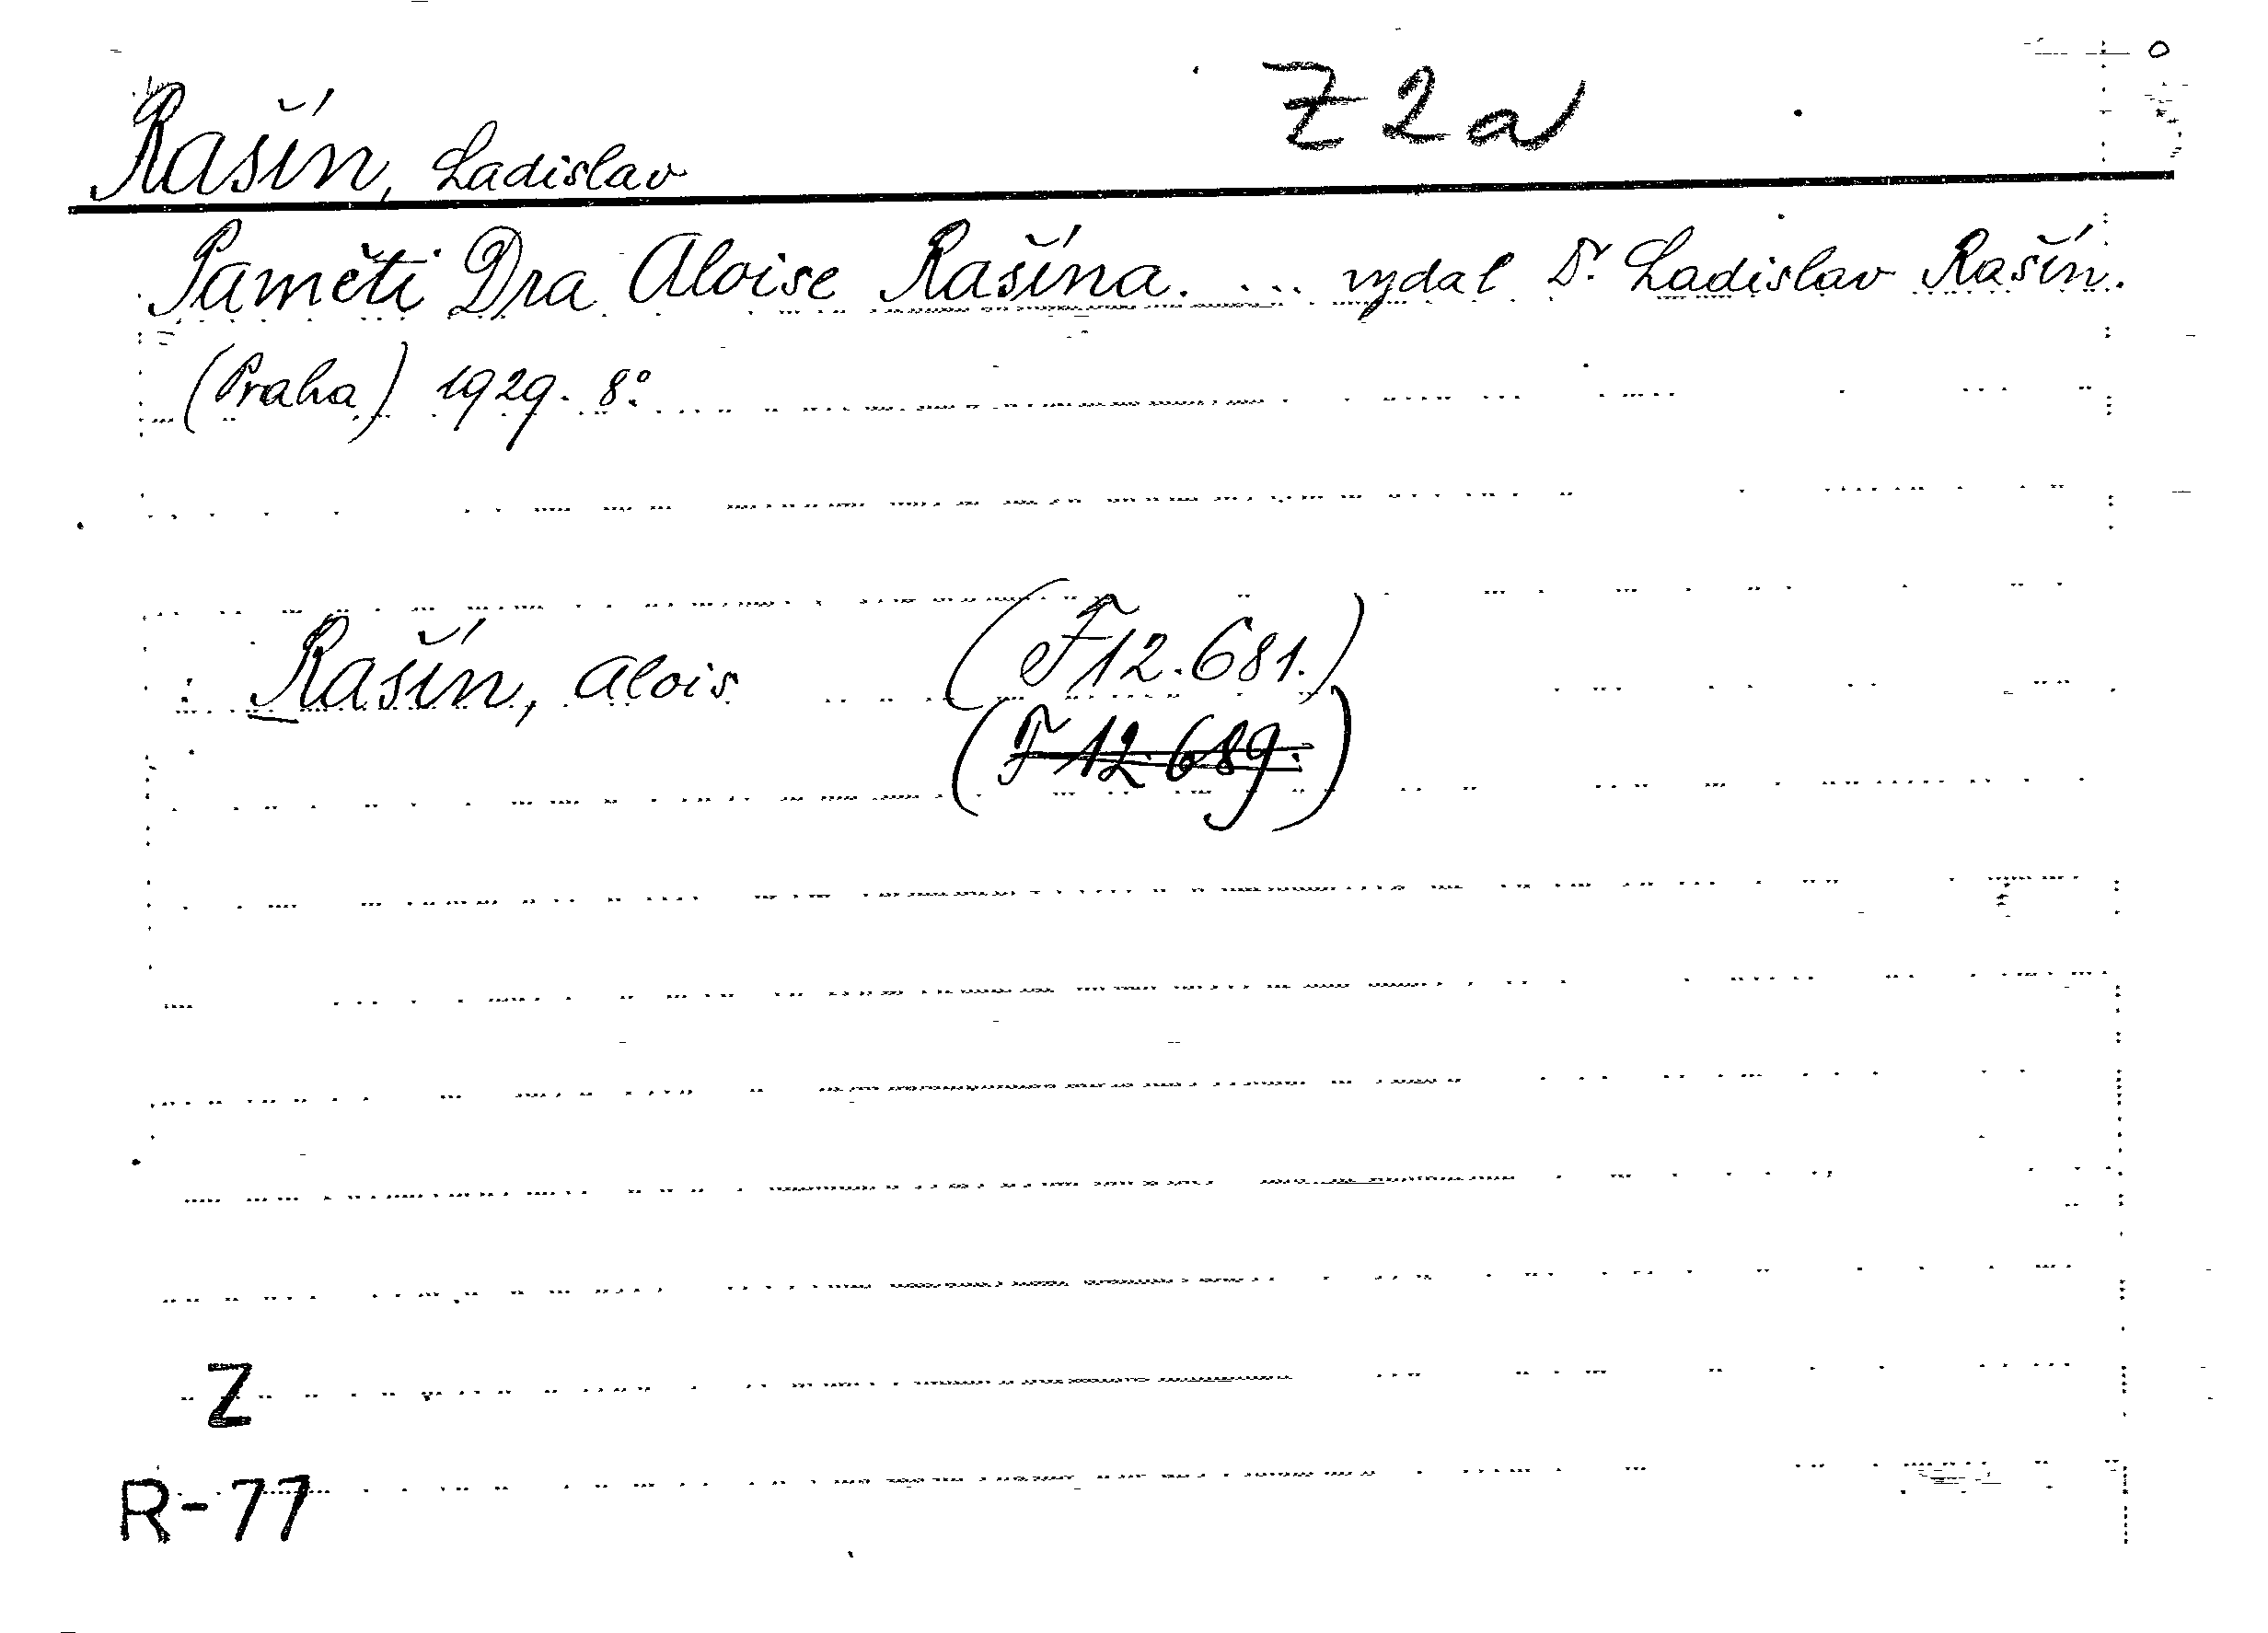 Z 2 a
Rašín, Ladislav
Paměti Dra Aloise Rašína. ... vydal Dr. Ladislav Rašín.
(Praha) 1929. 8°.
: Rašín, Alois (F 12.681.)
(F 12.689.)
Z
R-77